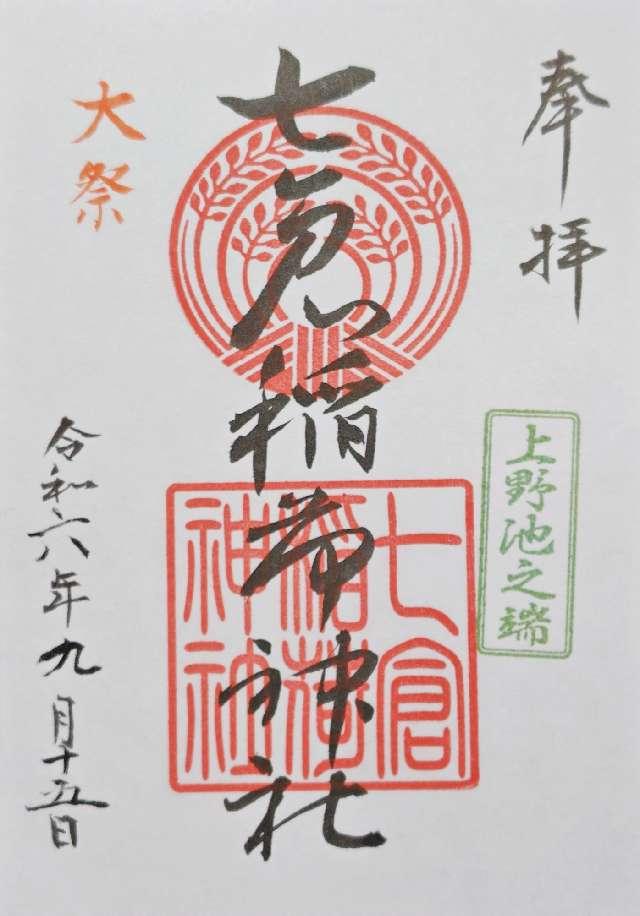 奉拝
上野池之端
七倉稲荷神社
七倉
稲荷
神社
大祭
令和六年九月十五日